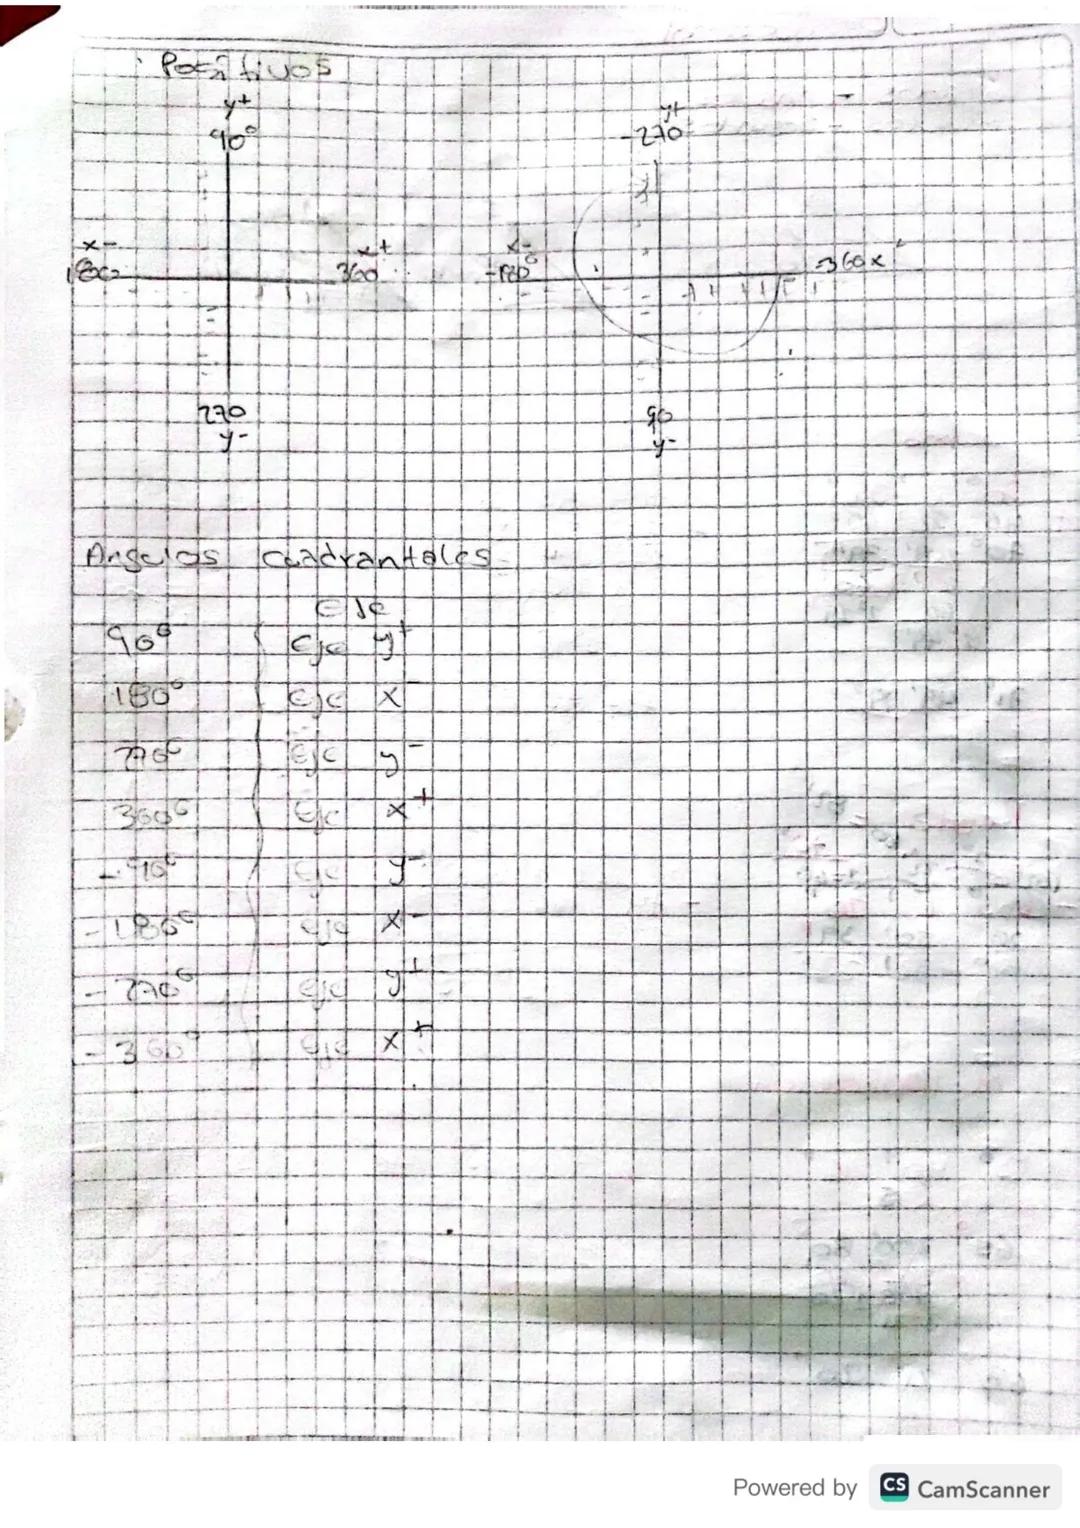 Positivos
y+
90°
x-
180
x+
360
270
y-
y+
-270
x-
-180°
-360 x
90
y-
Angulos cuadrantales
Eje
90° Eje y+
180° Eje x-
270° Eje y-
360° Eje x+
-90° Eje y-
-180° eje x-
-270° eje y+
-360° eje x+
Powered by CS CamScanner